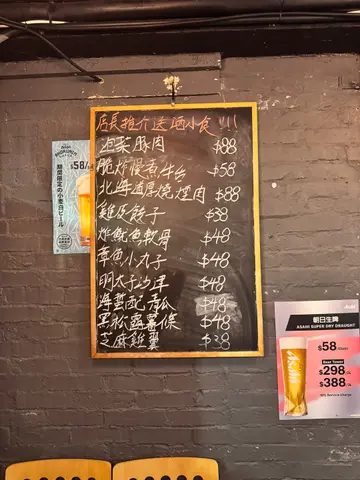 店長推介送酒小食!!!
泡菜豚肉 $88
脆炸慢煮牛台 $58
北海道厚燒煙肉 $88
雞皮餃子 $38
炸魷魚軟骨 $48
章魚小丸子 $48
明太子沙津 $48
青瓜 $48
黑松露薯條 $48
芝麻雞翼 $38
$58/
期間限定の小麦白ビール
朝日生啤
ASAHI SUPER DRY DRAUGHT
$58/Glass
Beer Tower
$298/2L
$388/3L
10% Service charge